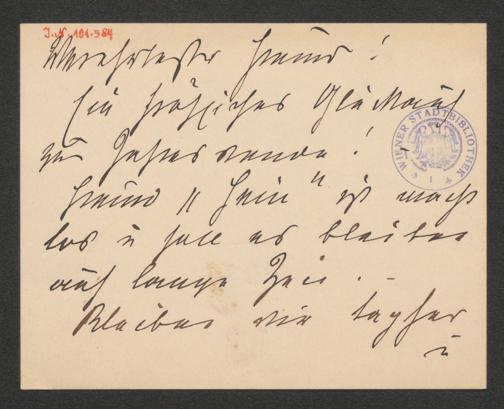 I.N. 101.584
Verehrtester Freund!
Ein fröhliches Glückauf
zur Jahreswende!
Freund „Hein“ ist macht
los u soll es bleiben
auf lange Zeit. –
Bleiben wir tapfer
u
WIENER STADTBIBLIOTHEK